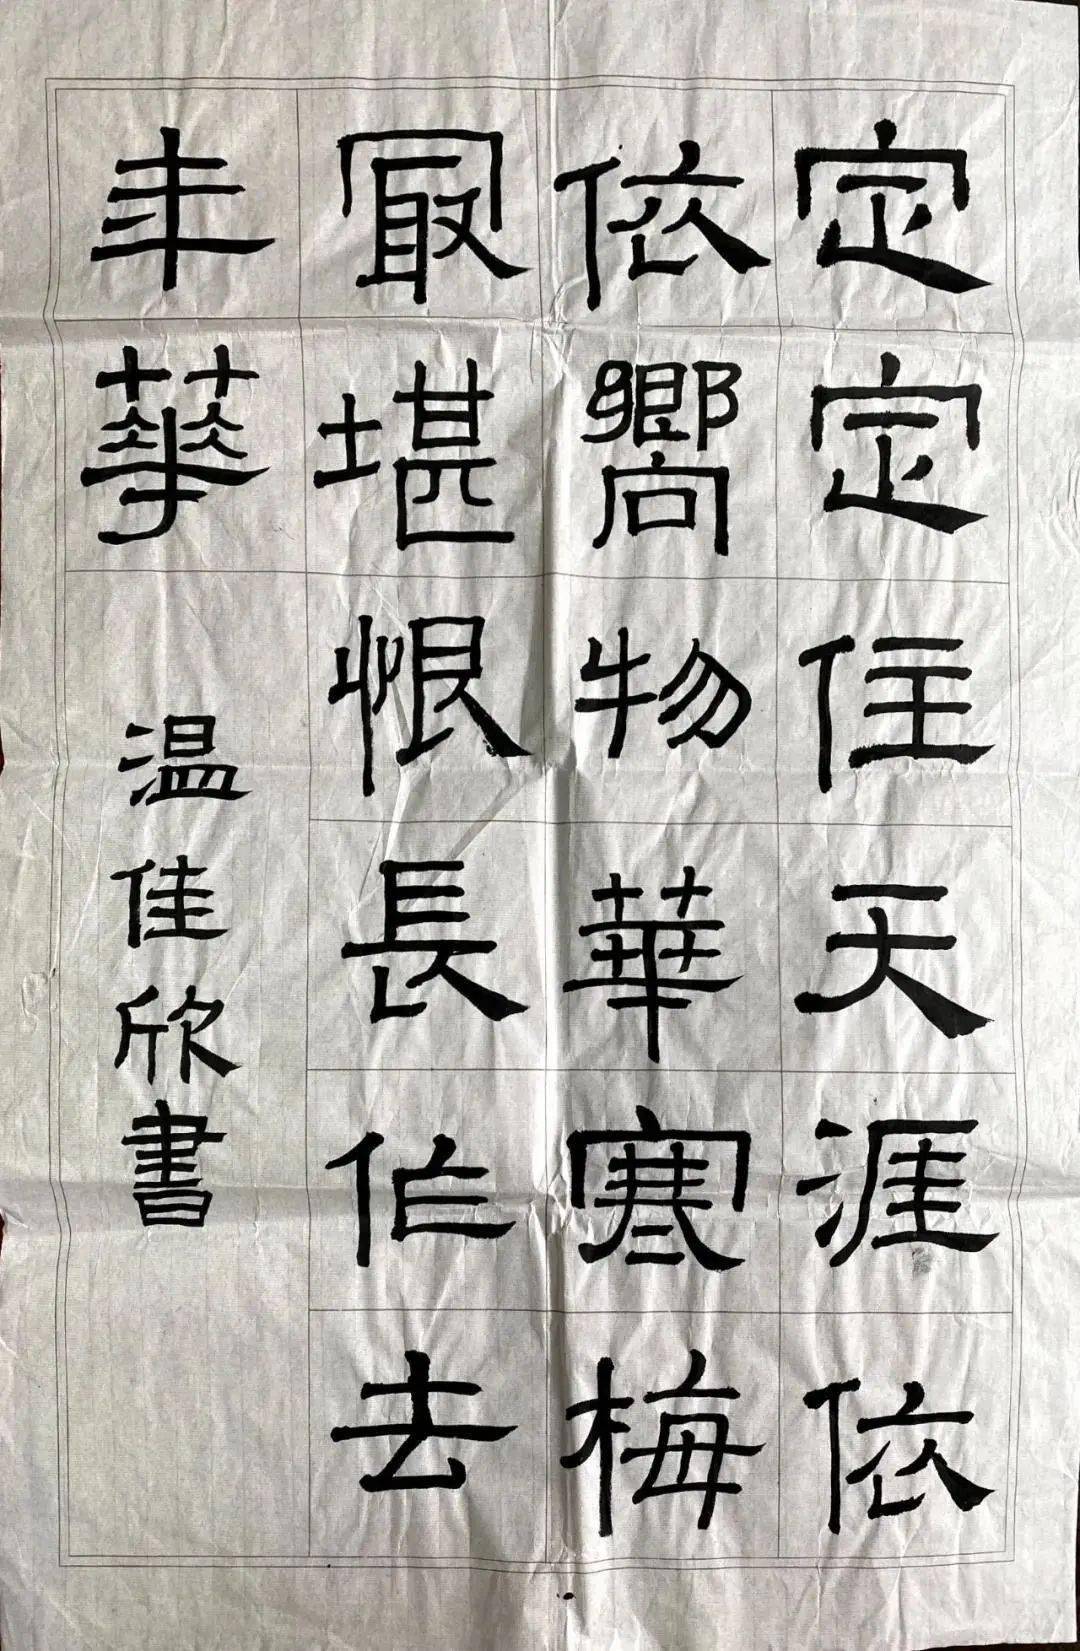 定定住天涯依
依嚮物華寒梅
最堪恨長作去
年華
温佳欣書